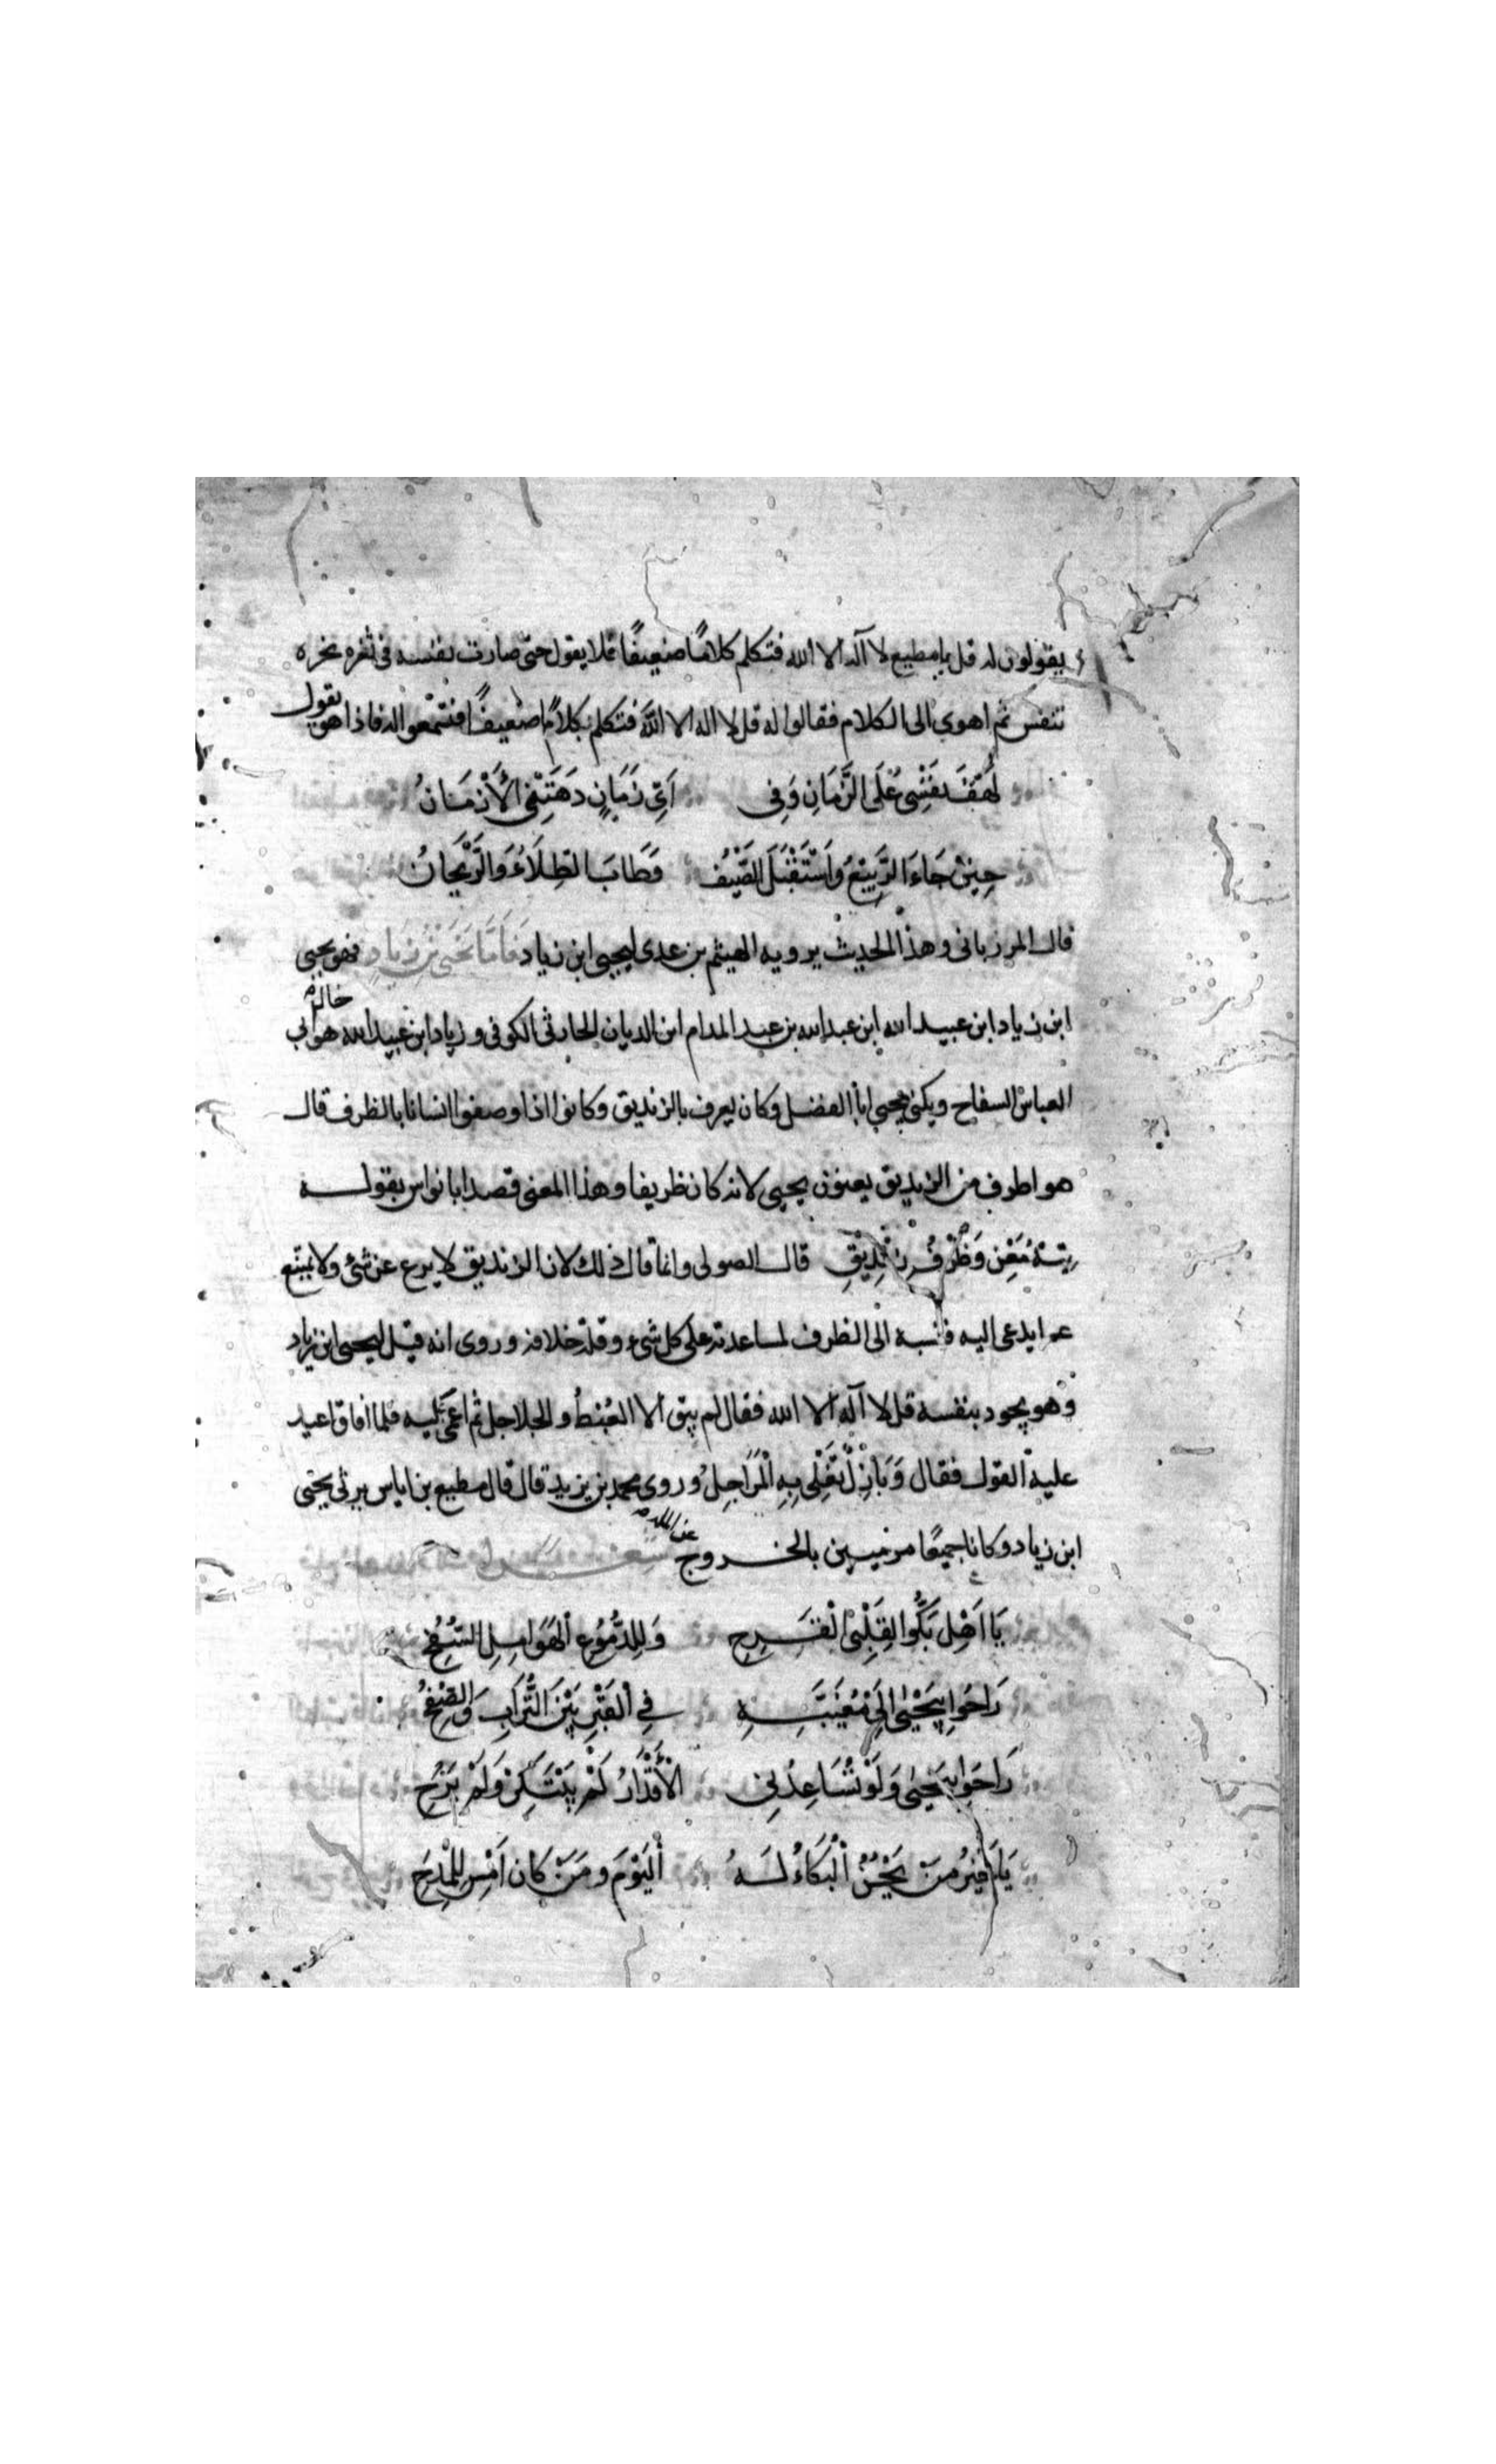 يقولون له قل يا مطيع لا آله الا الله فتكلم كلامًا ضعيفًا فلا يقول حتى صارت نفسه في ثغره نحره
تنفس ثم اهوى الى الكلام فقالوا له قل لا اله الا اللّه فتكلم بكلامٍ ضعيفًا فتسمّعوا له فاذا هو يقول
لَهْفَ نَفْسِي عَلَى الزَّمَانِ وَفِي اَيِّ زَمَانٍ دَهَتْنِي الْأَزْمَانُ
حِيْنَ جَاءَ الرَّبِيْعُ وَاسْتَقْبَلَ الصَّيْفُ وَطَابَ الطِّلَاءُ وَالرَّيْحَانُ
قال المرزباني وهذا الحديث يرويه الهيثم بن عدى ليحيى ابن زياد فَاَمَّا يَحْيَى بْن زِيَادٍ فهو يحيى
ابن زياد ابن عبيد الله ابن عبد الله بن عبد المدام ابن الديان الحارثى الكوفى وزياد ابن عبيد الله هو خال ابى
العباس السفاح ويكنى يحيى ابا الفضل وكان يعرف بالزنديق وكانوا اذا وصفوا انسانا بالظرف قال
هو اظرف من الزنديق يعنون يحيى لانه كان ظريفا وهذا المعنى قصد ابا نواس بقوله
تِيْهُ مُغَنٍّ وَظَرْفُ زِنْدِيْقِ قال الصولى وانما قال ذلك لان الزنديق لا يدع عن شئ ولا يمتنع
عما يدعى اليه فنسبه الى الظرف لمساعدته على كل شىء وقلة خلافه وروى انه قيل ليحيى ابن زياد
وهو يجود بنفسه قل لا آله الا الله فقال لم يبق الا القُرْطُ والجلاجل ثم اغمى عليه فلما افاق اعيد
عليه القول فقال وَبَازِلٌ تَغْلِى بِهِ الْمَرَاجِلُ وروى محمد بن يزيد قال قال مطيع بن اياس يرثى يحيى
ابن زياد وكانا جميعًا مرميين بالخروج عن الملة شعر
يَا اَهْلِ بَكُّوا لِقَلْبِيْ الْقَرِحِ وَلِلدُّمُوْعِ الْهَوَامِلِ السُّفُحِ
رَاحُوا بِيَحْيَى اِلَى مُغَيَّبَةٍ فِى الْقَبْرِ بَيْنَ التُّرَابِ وَالصُّفُحِ
رَاحُوا بِيَحْيَى وَلَوْ تُسَاعِدُنِى الْأَقْدَارُ لَمْ يَبْتَكِرْ وَلَمْ يَرُحِ
يَا خَيْرُ مَنْ يَحْسُنُ الْبُكَاءُ لَهُ الْيَوْمَ وَمَنْ كَانَ اَمْسِ لِلْمِدَحِ